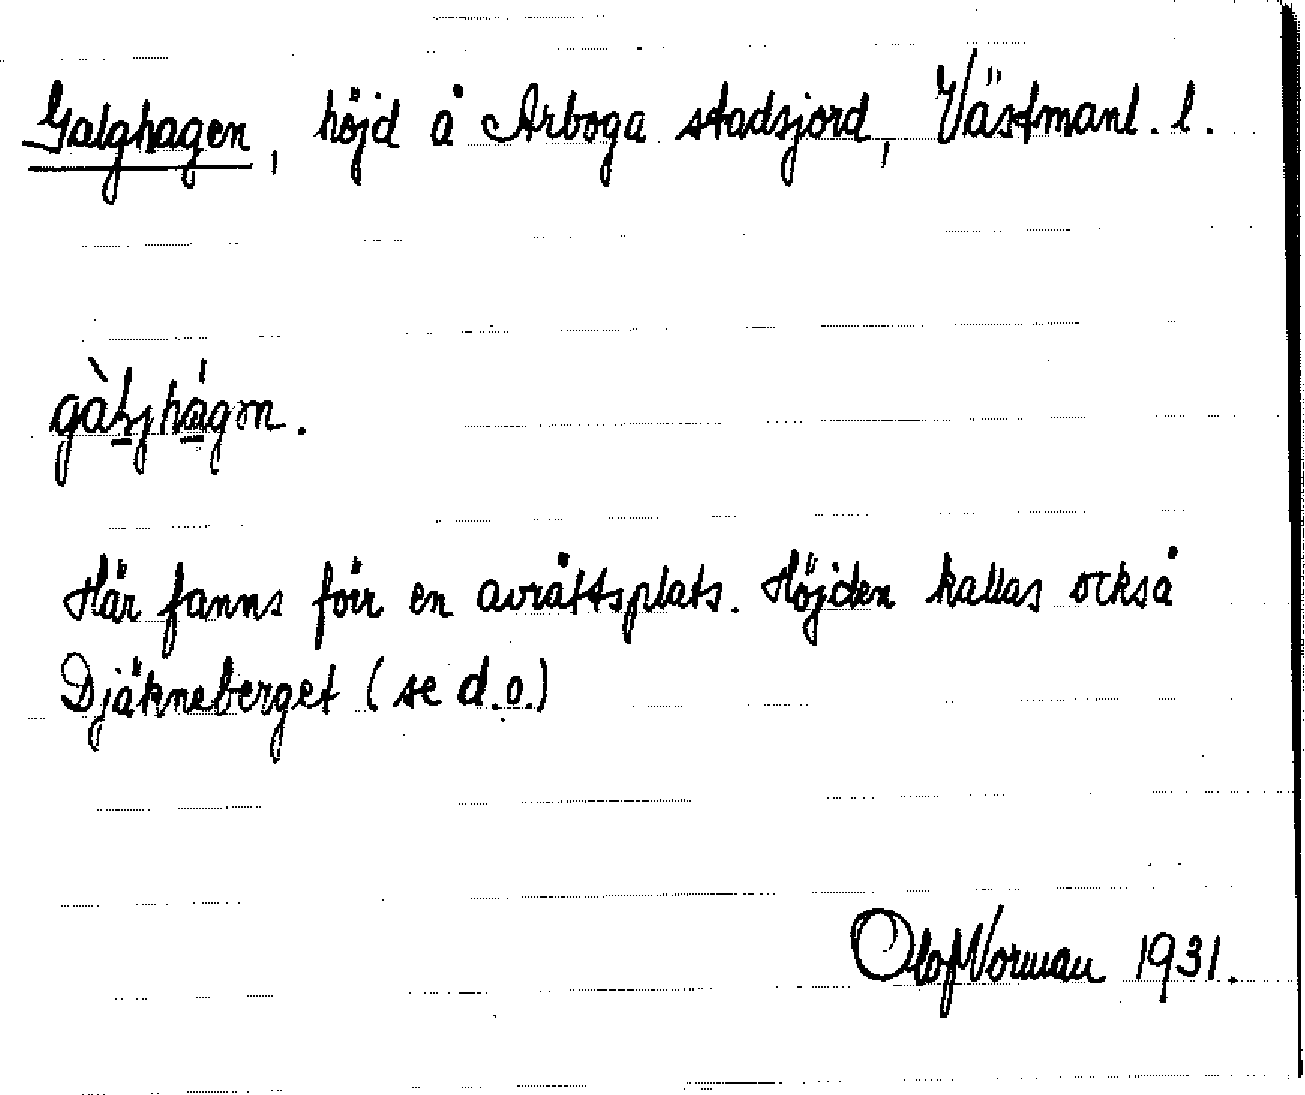 Galghagen, höjd å Arboga stadsjord, Västmanl. l.
Här fanns förr en avrättsplats. Höjden kallas också
Djäkneberget (se d.o.)
Olof Norman 1931.